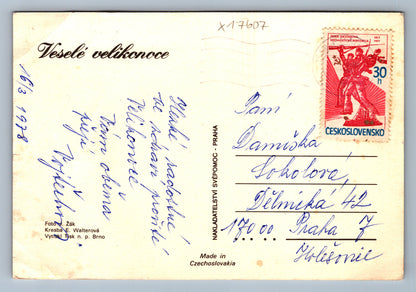 x17607
Veselé velikonoce
16/3 1978
Hezké radostné
Velikonoce
Vám oběma
přejí
Foto J. Žák
Kresba E. Walterová
Vytiskl Tisk n. p. Brno
NAKLADATELSTVÍ SVÉPOMOC - PRAHA
Made in
Czechoslovakia
1917
1977
30
h
ČESKOSLOVENSKO
Paní
Sokolová,
Dělnická 42
17000 Praha 7
Holešovice